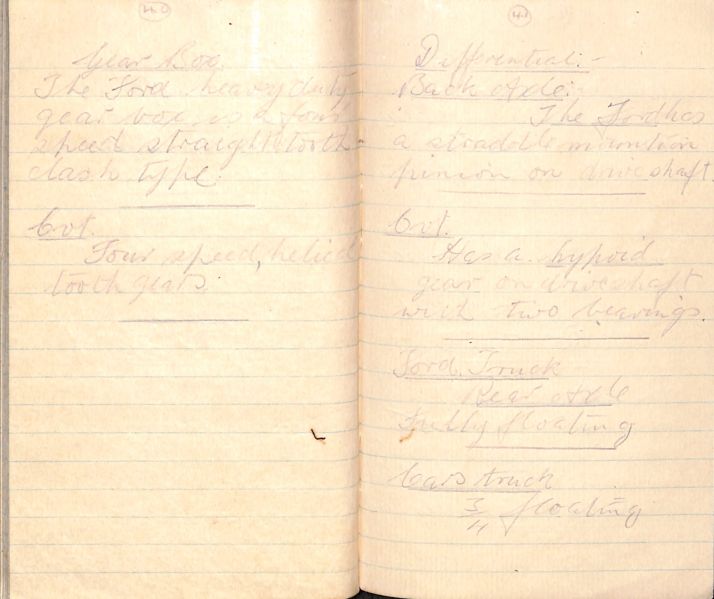 40
Gear Box.
The Ford heavy duty
gear box is a four
speed straight tooth
clash type.
Cvt.
Four speed, helical
tooth gears.
41
Differential:-
Back Axle:-
The Ford has
a straddle mountin
pinion on drive shaft.
Cvt.
Has a hypoid
gear on driveshaft
with two bearings.
Ford Truck
Rear Axle
Fully floating
Cars truck
3/4 floating